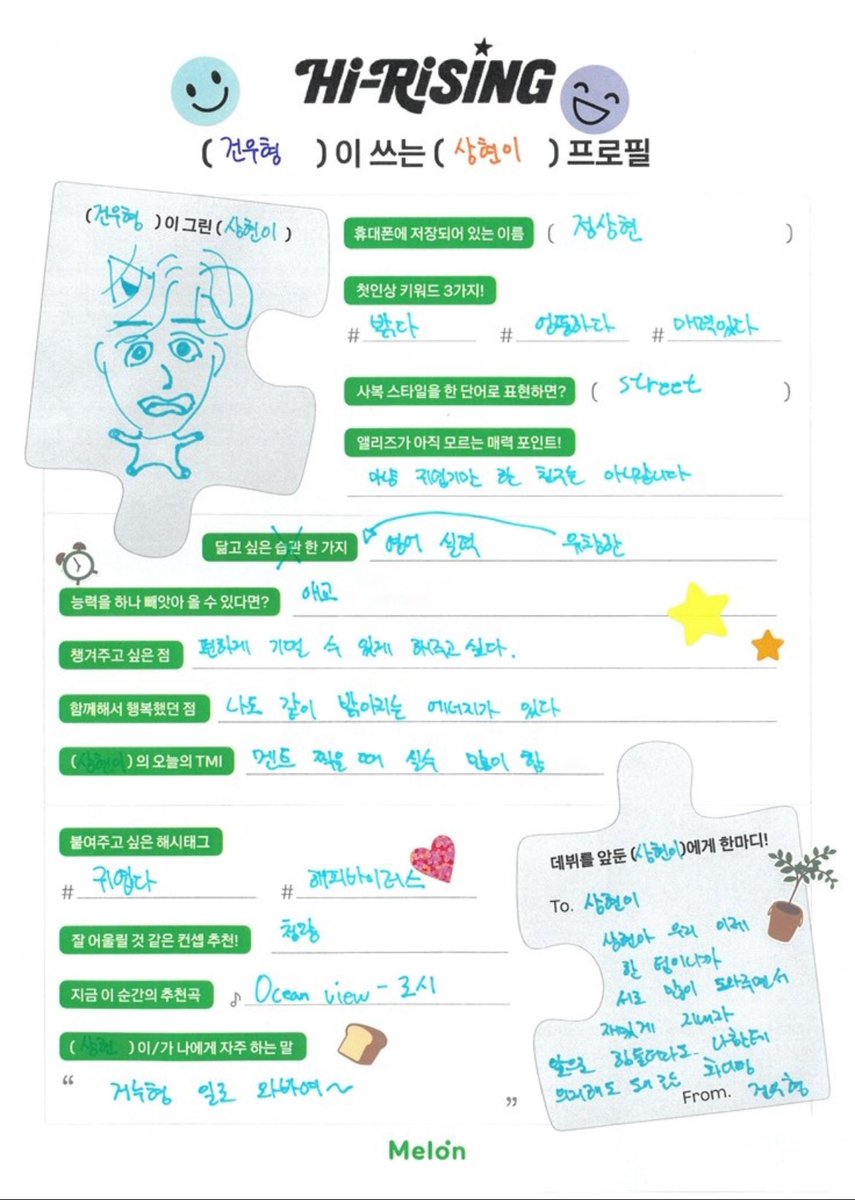 Hi-RiSiNG
( 건우형 ) 이 쓰는 ( 상현이 ) 프로필
( 건우형 ) 이 그린 ( 상현이 )
휴대폰에 저장되어 있는 이름 ( 정상현 )
첫인상 키워드 3가지!
# 밝다 # 엉뚱하다 # 매력있다
사복 스타일을 한 단어로 표현하면? ( street )
앨리즈가 아직 모르는 매력 포인트!
마냥 귀엽기만 한 친구는 아니랍니다
닮고 싶은 습관 한 가지 영어 실력 유창한
능력을 하나 빼앗아 올 수 있다면? 애교
챙겨주고 싶은 점 편하게 기댈 수 있게 해주고 싶다.
함께해서 행복했던 점 나도 같이 밝아지는 에너지가 있다
( 상현이 ) 의 오늘의 TMI 멘트 찍을 때 실수 많이 함
붙여주고 싶은 해시태그
# 귀엽다 # 해피바이러스
잘 어울릴 것 같은 컨셉 추천! 청량
지금 이 순간의 추천곡 ♪ Ocean view - 로시
( 상현 ) 이/가 나에게 자주 하는 말
“ 거누형 일로 와바여~ ”
데뷔를 앞둔 (상현이)에게 한마디!
To. 상현이
상현아 우리 이제
한 팀이니까
서로 많이 도와주면서
재밌게 지내자
앞으로 힘들더라도 나한테
의지해도 돼 화이팅
From. 건우형
Melon